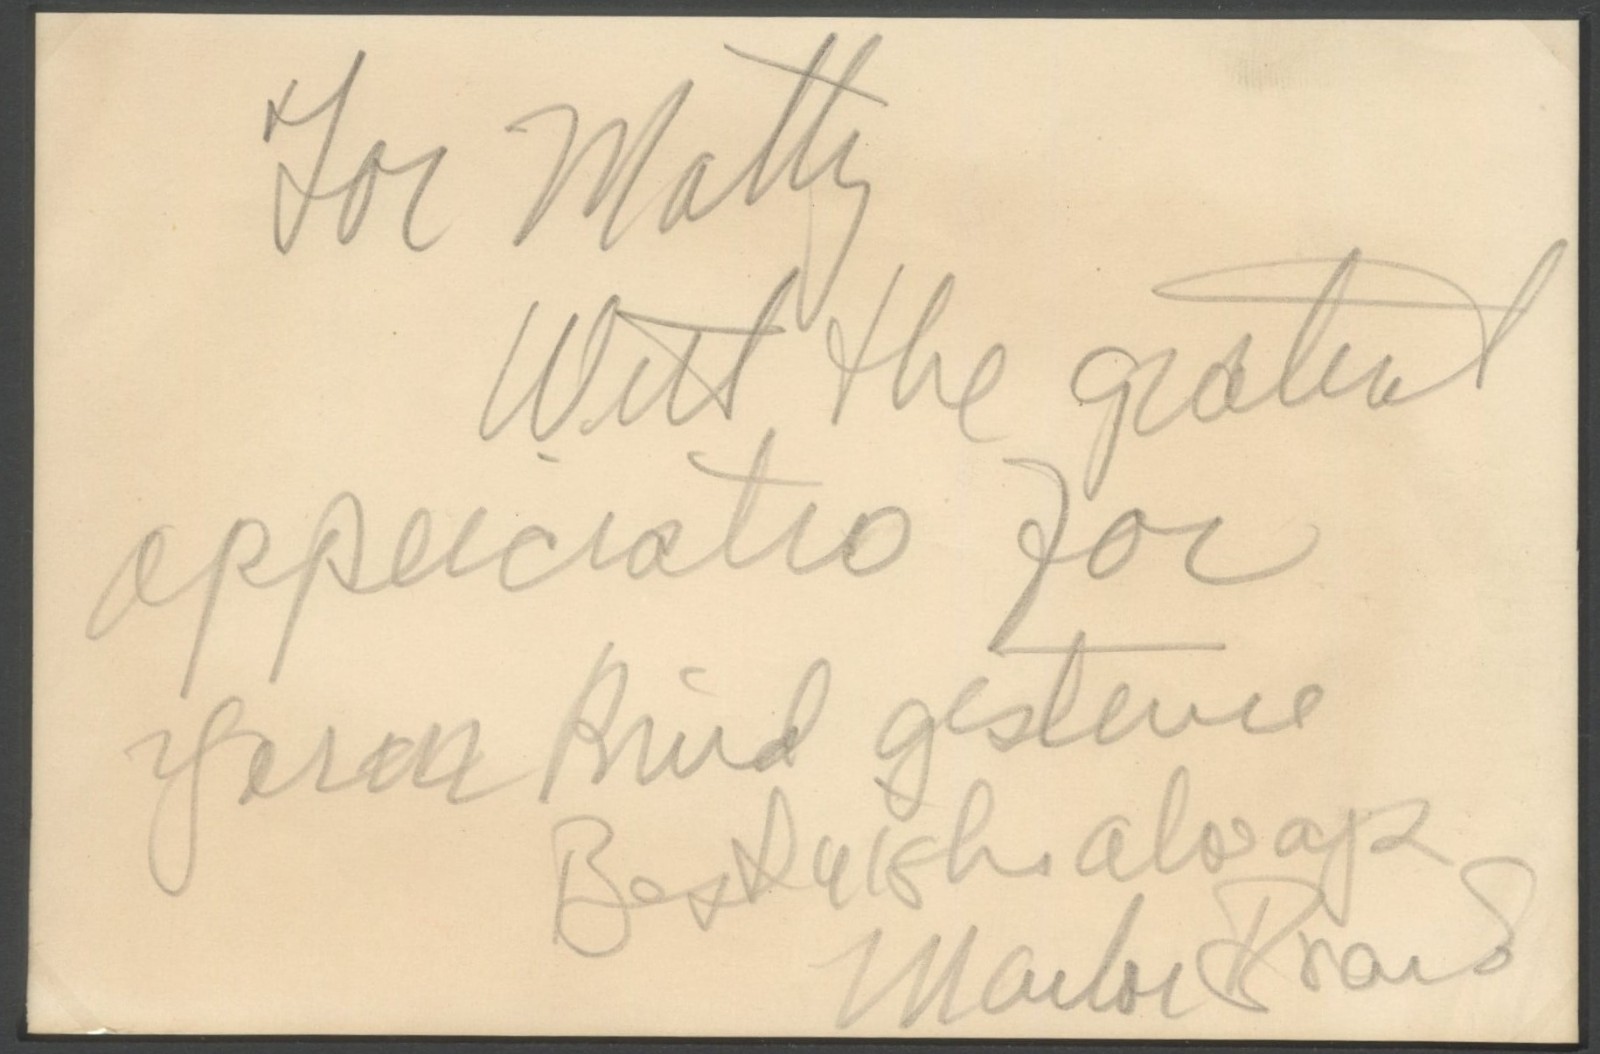 For Matty
With the greatest
appreciation for
your kind gesture
Best wishes always
Marlon Brando